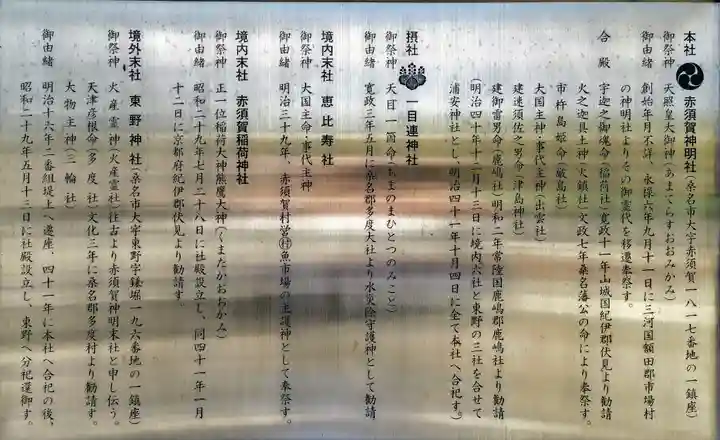 本社 赤須賀神明社(桑名市大字赤須賀一八一七番地の一鎮座)
御祭神 天照皇大御神(あまてらすおおみかみ)
御由緒 創始年月不詳、永禄六年九月十一日に三河国額田郡市場村
の神明社よりその御霊代を移遷奉祭す。
合殿 宇迦之御魂命(稲荷社)寛政十一年山城国紀伊郡伏見より勧請
火之迦具土神(火鎮社)文政七年桑名藩公の命により奉祭す。
市杵島姫命(厳島社)
大国主神・事代主神(出雲社)
建速須佐之男命(津島神社)
建御雷男命(鹿嶋社)明和二年常陸国鹿嶋郡鹿嶋社より勧請
(明治四十年十二月十三日に境内六社と東野の三社を合せて
浦安神社とし、明治四十一年十月四日に全て本社へ合祀す。)
摂社 一目連神社
御祭神 天目一箇命(あまのまひとつのみこと)
御由緒 寛政三年五月に桑名郡多度大社より水災除守護神として勧請
境内末社 恵比寿社
御祭神 大国主命・事代主神
御由緒 明治三十九年、赤須賀村営㊑魚市場の主護神として奉祭す。
境内末社 赤須賀稲荷神社
御祭神 正一位稲荷大神熊鷹大神(くまたかおおかみ)
御由緒 昭和二十九年七月二十八日に社殿設立し、同四十一年一月
十二日に京都府紀伊郡伏見より勧請す。
境外末社 東野神社(桑名市大字東野字鎌堀一九六番地の一鎮座)
御祭神 火産霊神(火産霊社)往古より赤須賀神明末社と申し伝う。
天津彦根命(多度社)文化三年に桑名郡多度村より勧請す。
大物主神(三輪社)
御由緒 明治十六年三番組堤上へ遷座、四十一年に本社へ合祀の後、
昭和二十九年五月十三日に社殿設立し、東野へ分祀還御す。